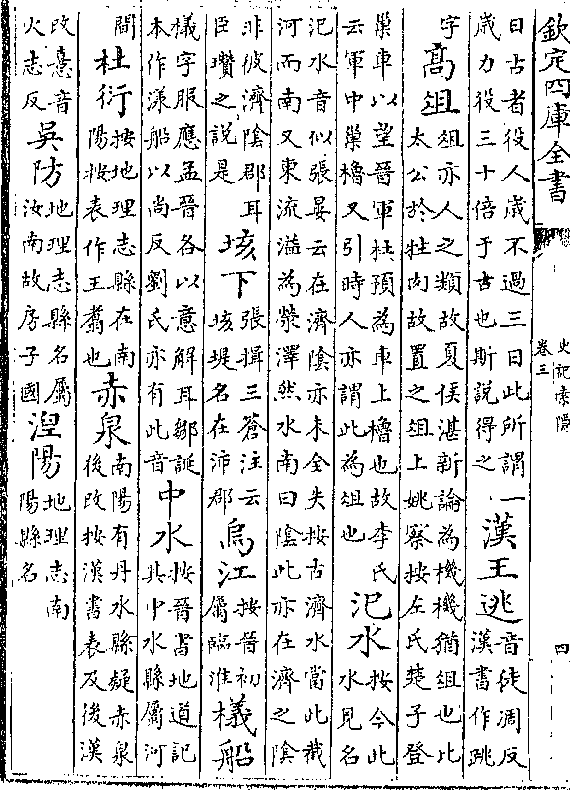 欽定四庫全書
史記索隱
卷三
四
曰古者役人歲不過三日此所謂一
歲力役三十倍于古也斯說得之
漢王逃
音徒凋反
漢書作跳
字
高俎
俎亦人之類故夏侯湛新論為機機猶俎也比
太公於牲肉故置之俎上姚察按左氏楚子登
巢車以望晉軍杜預為車上櫓也故李氏
云軍中巢櫓又引時人亦謂此為俎也
汜水
按今此
水見名
汜水音似張晏云在濟陰亦未全失按古濟水當此截
河而南又東流溢為滎澤然水南曰陰此亦在濟之陰
非彼濟陰郡耳
臣瓚之說是
垓下
張揖三蒼注云
垓堤名在沛郡
烏江
按晉初
屬臨淮
檥船
檥字服應孟晉各以意解耳鄒誕
本作漾船以尚反劉氏亦有此音
中水
按晉書地道記
其中水縣屬河
間
杜衍
按地理志縣在南
陽按表作王翥也
赤泉
南陽有丹水縣疑赤泉
後改按漢書表及後漢
改憙音
火志反
吳防
地理志縣名屬
汝南故房子國
湼陽
地理志南
陽縣名